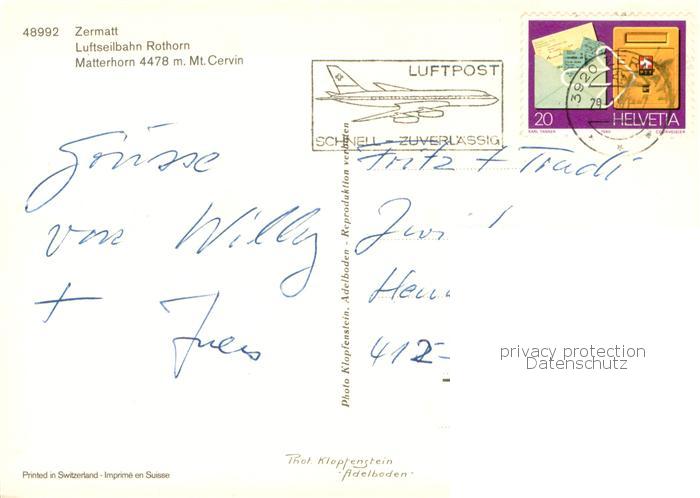 48992 Zermatt
Luftseilbahn Rothorn
Matterhorn 4478 m. Mt. Cervin
LUFTPOST
SCHNELL - ZUVERLÄSSIG
3920
20 HELVETIA
Grüsse
von Willy
+
Fritz + Trudi
412-
Photo Klopfenstein, Adelboden - Reproduktion verboten
privacy protection
Datenschutz
Phot. Klopfenstein
- Adelboden -
Printed in Switzerland - Imprimé en Suisse